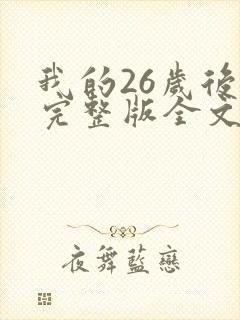 我的26歲後
完整版全文
夜舞藍戀